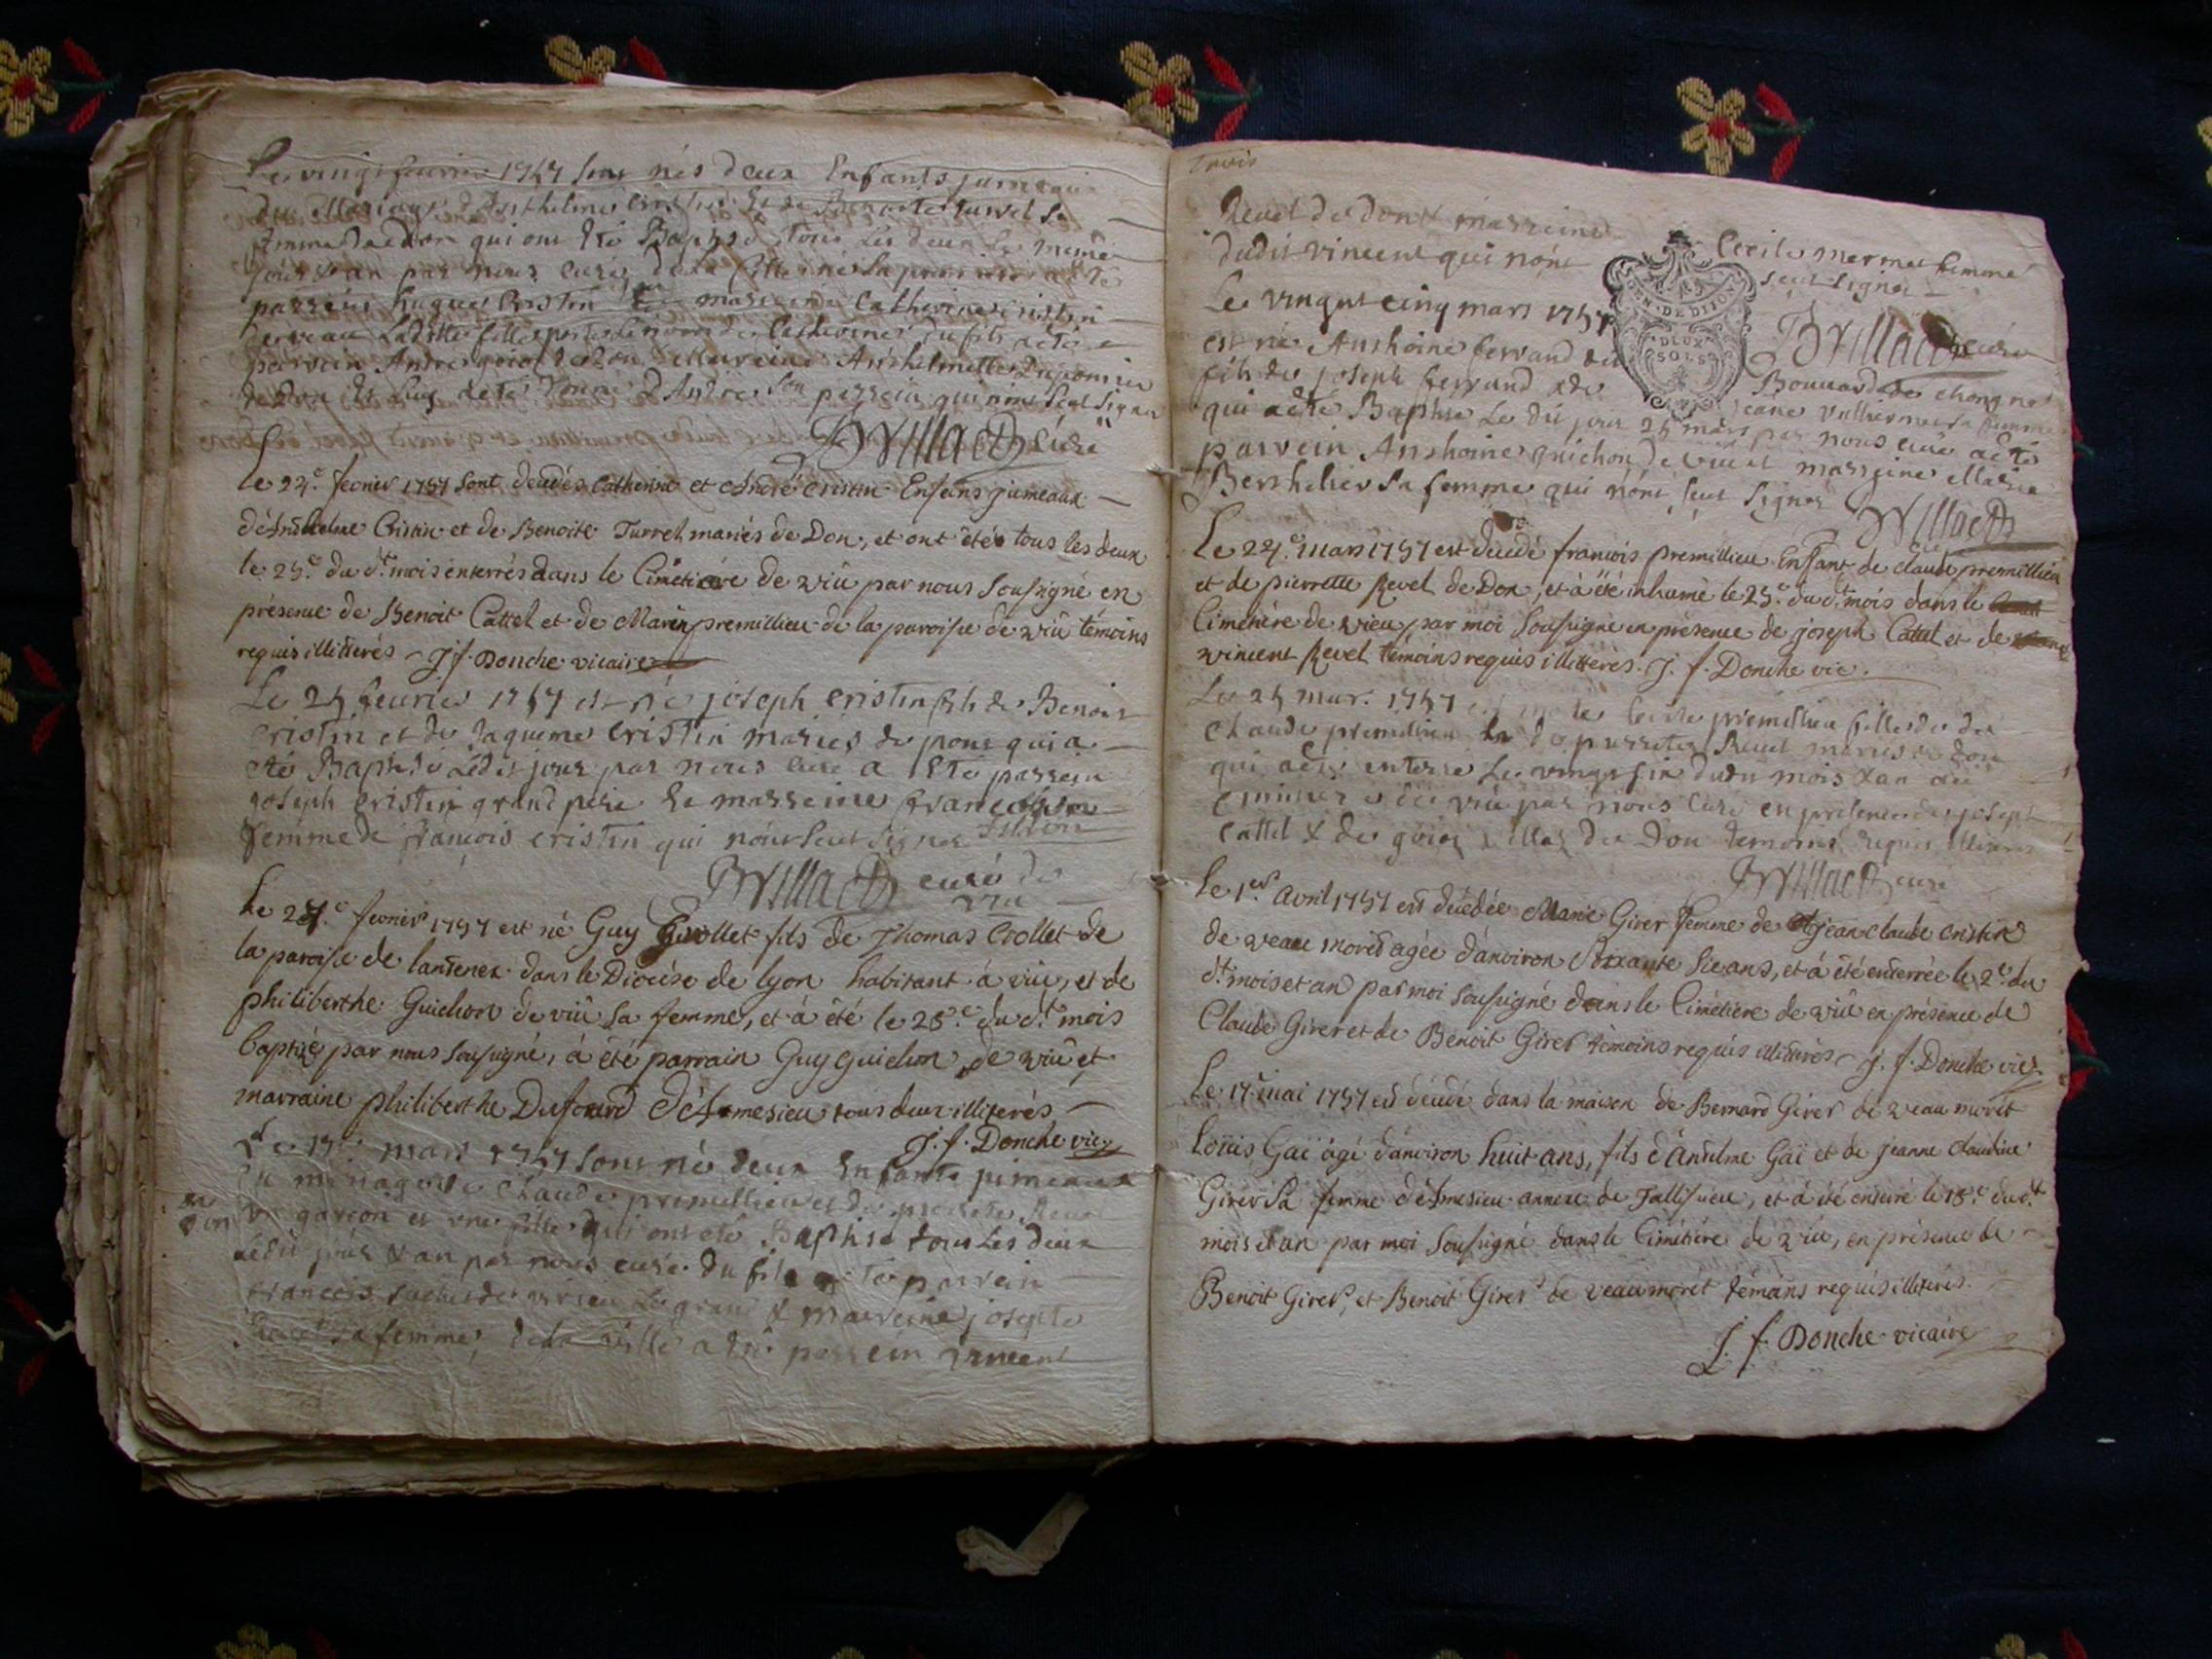 Le vingt feuvrier 1757 sont nés deux Enfants jumeaux
du Mariage d'Anthelme Cristin Et de Benoite turrel Sa
femme de don qui ont été Baptisé tous les deux Le meme
jour & an par nous curé, de la fille
parrein hugues Cristin Et marreine Catherine Cristin
Ladite fille porte le nom de Catherine, du fils a été
parrein André de don Marreine Anthelmette Dupomier
de don Et Luy a été André Son parrein qui n'ont Sçut Signer
Brillat Curé
Le 24.e fevrier 1757 sont decedés Catherine et André Cristin Enfans jumeaux
d'Anthelme Cristin et de Benoite Turrel mariés de Don, et ont étés tous les deux
le 25.e du d.t mois enterrés dans le Cimetiere de viû par nous Soussigné en
présence de Benoit Cattel et de Marin premillieu de la paroisse de viû témoins
requis illitterés J. f. Donche vicaire
Le 25 feuvrier 1757 est né joseph Cristin fils de Benoit
Cristin et de Jaqueme Cristin mariés de pont qui a
été Baptisé Ledit jour par nous curé a Eté parrein
joseph Cristin grand pere Et marreine françoise
femme de francois Cristin qui n'ont Sçut Signer
Brillat curé de
viu
Le 27.e fevrier 1757 est né Guy Crollet fils de Thomas Crollet de
la paroisse de lantenex dans le Diocése de lyon habitant à viû, et de
philiberthe Guichon de viû Sa femme, et à été le 28.e du d.t mois
baptisé par nous soussigné, à été parrain Guy Guichon de viû et
marraine philiberthe Dufourd d'Armesieu tous deux illiterés
J. f. Donche vic.
Le mars 1757 sont né deux Enfants jumeaux
du mariage de Claude premillieu et de pierrette Revel
un garçon et une fille qui ont été Baptisé tous Les deux
Ledit jour & an par nous curé. du fils a été parrein
francois de virieu Le grand & marreine josepte
Revel Sa femme, de la fille a été parrein vincent
trois
Revel de don & marreine Cecile mermet femme
dudit vincent qui n'ont sçut signer
Brillat curé
GEN. DE DIJON
DEUX
SOLS
Le vingt cinq mars 1757
est né Anthoine ferrand
fils de joseph ferrand & de jeane vulliermet sa femme
qui a été Baptisé Le dit jour 25 mars par nous curé a été
parrein Anthoine guichon de viu et marreine Marie
Berthelier sa femme qui n'ont sçut signer
Brillat
Le 24.e mars 1757 est decedé francois premillieu Enfant de claude premillieu
et de pierrette Revel de Don, et à été inhumé le 25.e du d.t mois dans le
Cimetiére de vieu par moi Soussigné en présence de joseph Cattel et de
vincent Revel témoins requis illitterés. J. f. Donche vic.
Le 25 mar. 1757 est morte Cecile premillieu fille de
Claude premillieu & de pierrette Revel mariés de don
qui a été enterré Le vingt six dudit mois & an au
cimitiere de viu par nous curé en presence de joseph
Cattel & de de Don temoins requis illiteres
Brillat curé
Le 1.er Avril 1757 est décédée Marie Girer femme de jean claude Cristin
de veaumoret agée d'anviron Soixante Six ans, et à été enterrée le 2.e du
d.t mois et an par moi Soussigné dans le Cimétiere de viû en présence de
Claude Girer et de Benoit Girer témoins requis illitterés J. f. Donche vic.
Le 17.e mai 1757 est décédé dans la maison de Bernard Girer de veaumorét
Loüis Gaï âgé d'anviron huit ans, fils d'Antelme Gaï et de jeanne claudine
Girer Sa femme d'Armesieu annexe de Tallissieu, et à été enterré le 18.e du d.t
mois et an par moi Soussigné dans le Cimétiére de viû, en présence de
Benoit Girer, et Benoit Girer de veaumorét témoins requis illiterés.
J. f. Donche vicaire